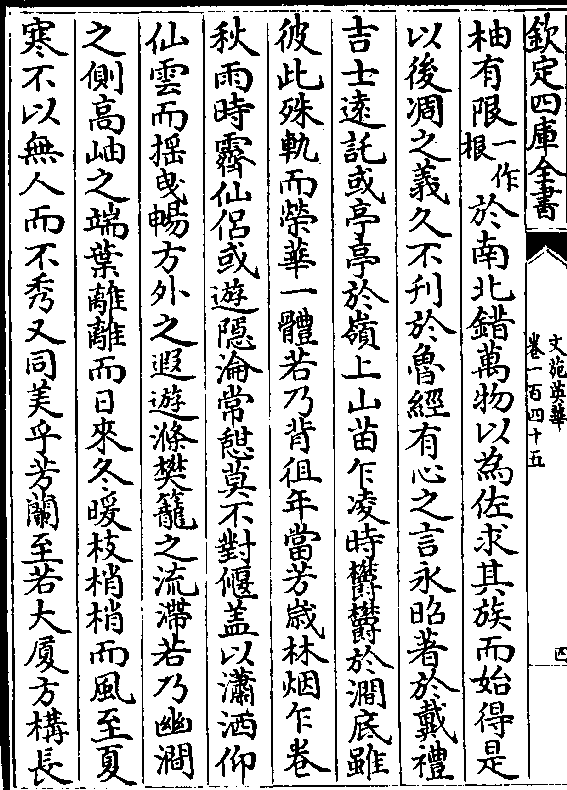 欽定四庫全書
文苑英華
卷一百四十五
四
柚有限一作根於南北錯萬物以為佐求其族而始得是
以後凋之義久不刋於魯經有心之言永昭著於戴禮
吉士遠託或亭亭於嶺上山苗乍凌時欝欝於澗底雖
彼此殊軌而榮華一體若乃背徂年當芳嵗林烟乍卷
秋雨時霽仙侣或遊隠淪常憇莫不對偃盖以瀟洒仰
仙雲而揺曵暢方外之遐遊滌樊籠之流滯若乃幽澗
之側高岫之端葉離離而日來冬暖枝梢梢而風至夏
寒不以無人而不秀又同美乎芳蘭至若大厦方構長